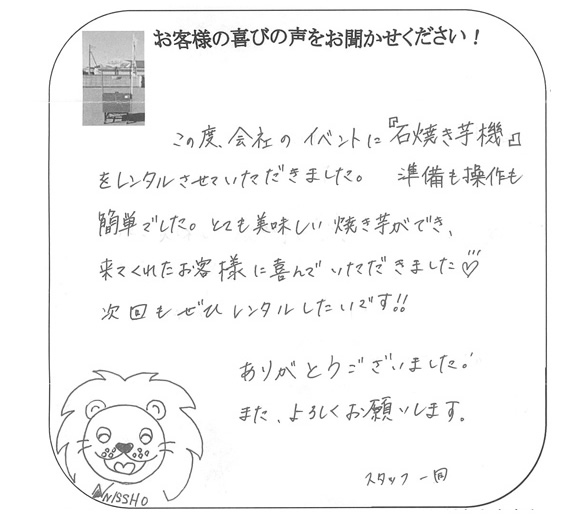 お客様の喜びの声をお聞かせください！
この度、会社のイベントに『石焼き芋機』
をレンタルさせていただきました。 準備も操作も
簡単でした。とても美味しい焼き芋ができ、
来てくれたお客様に喜んでいただきました♡
次回もぜひレンタルしたいです!!
ありがとうございました。
また、よろしくお願いします。
スタッフ一同
NISSHO